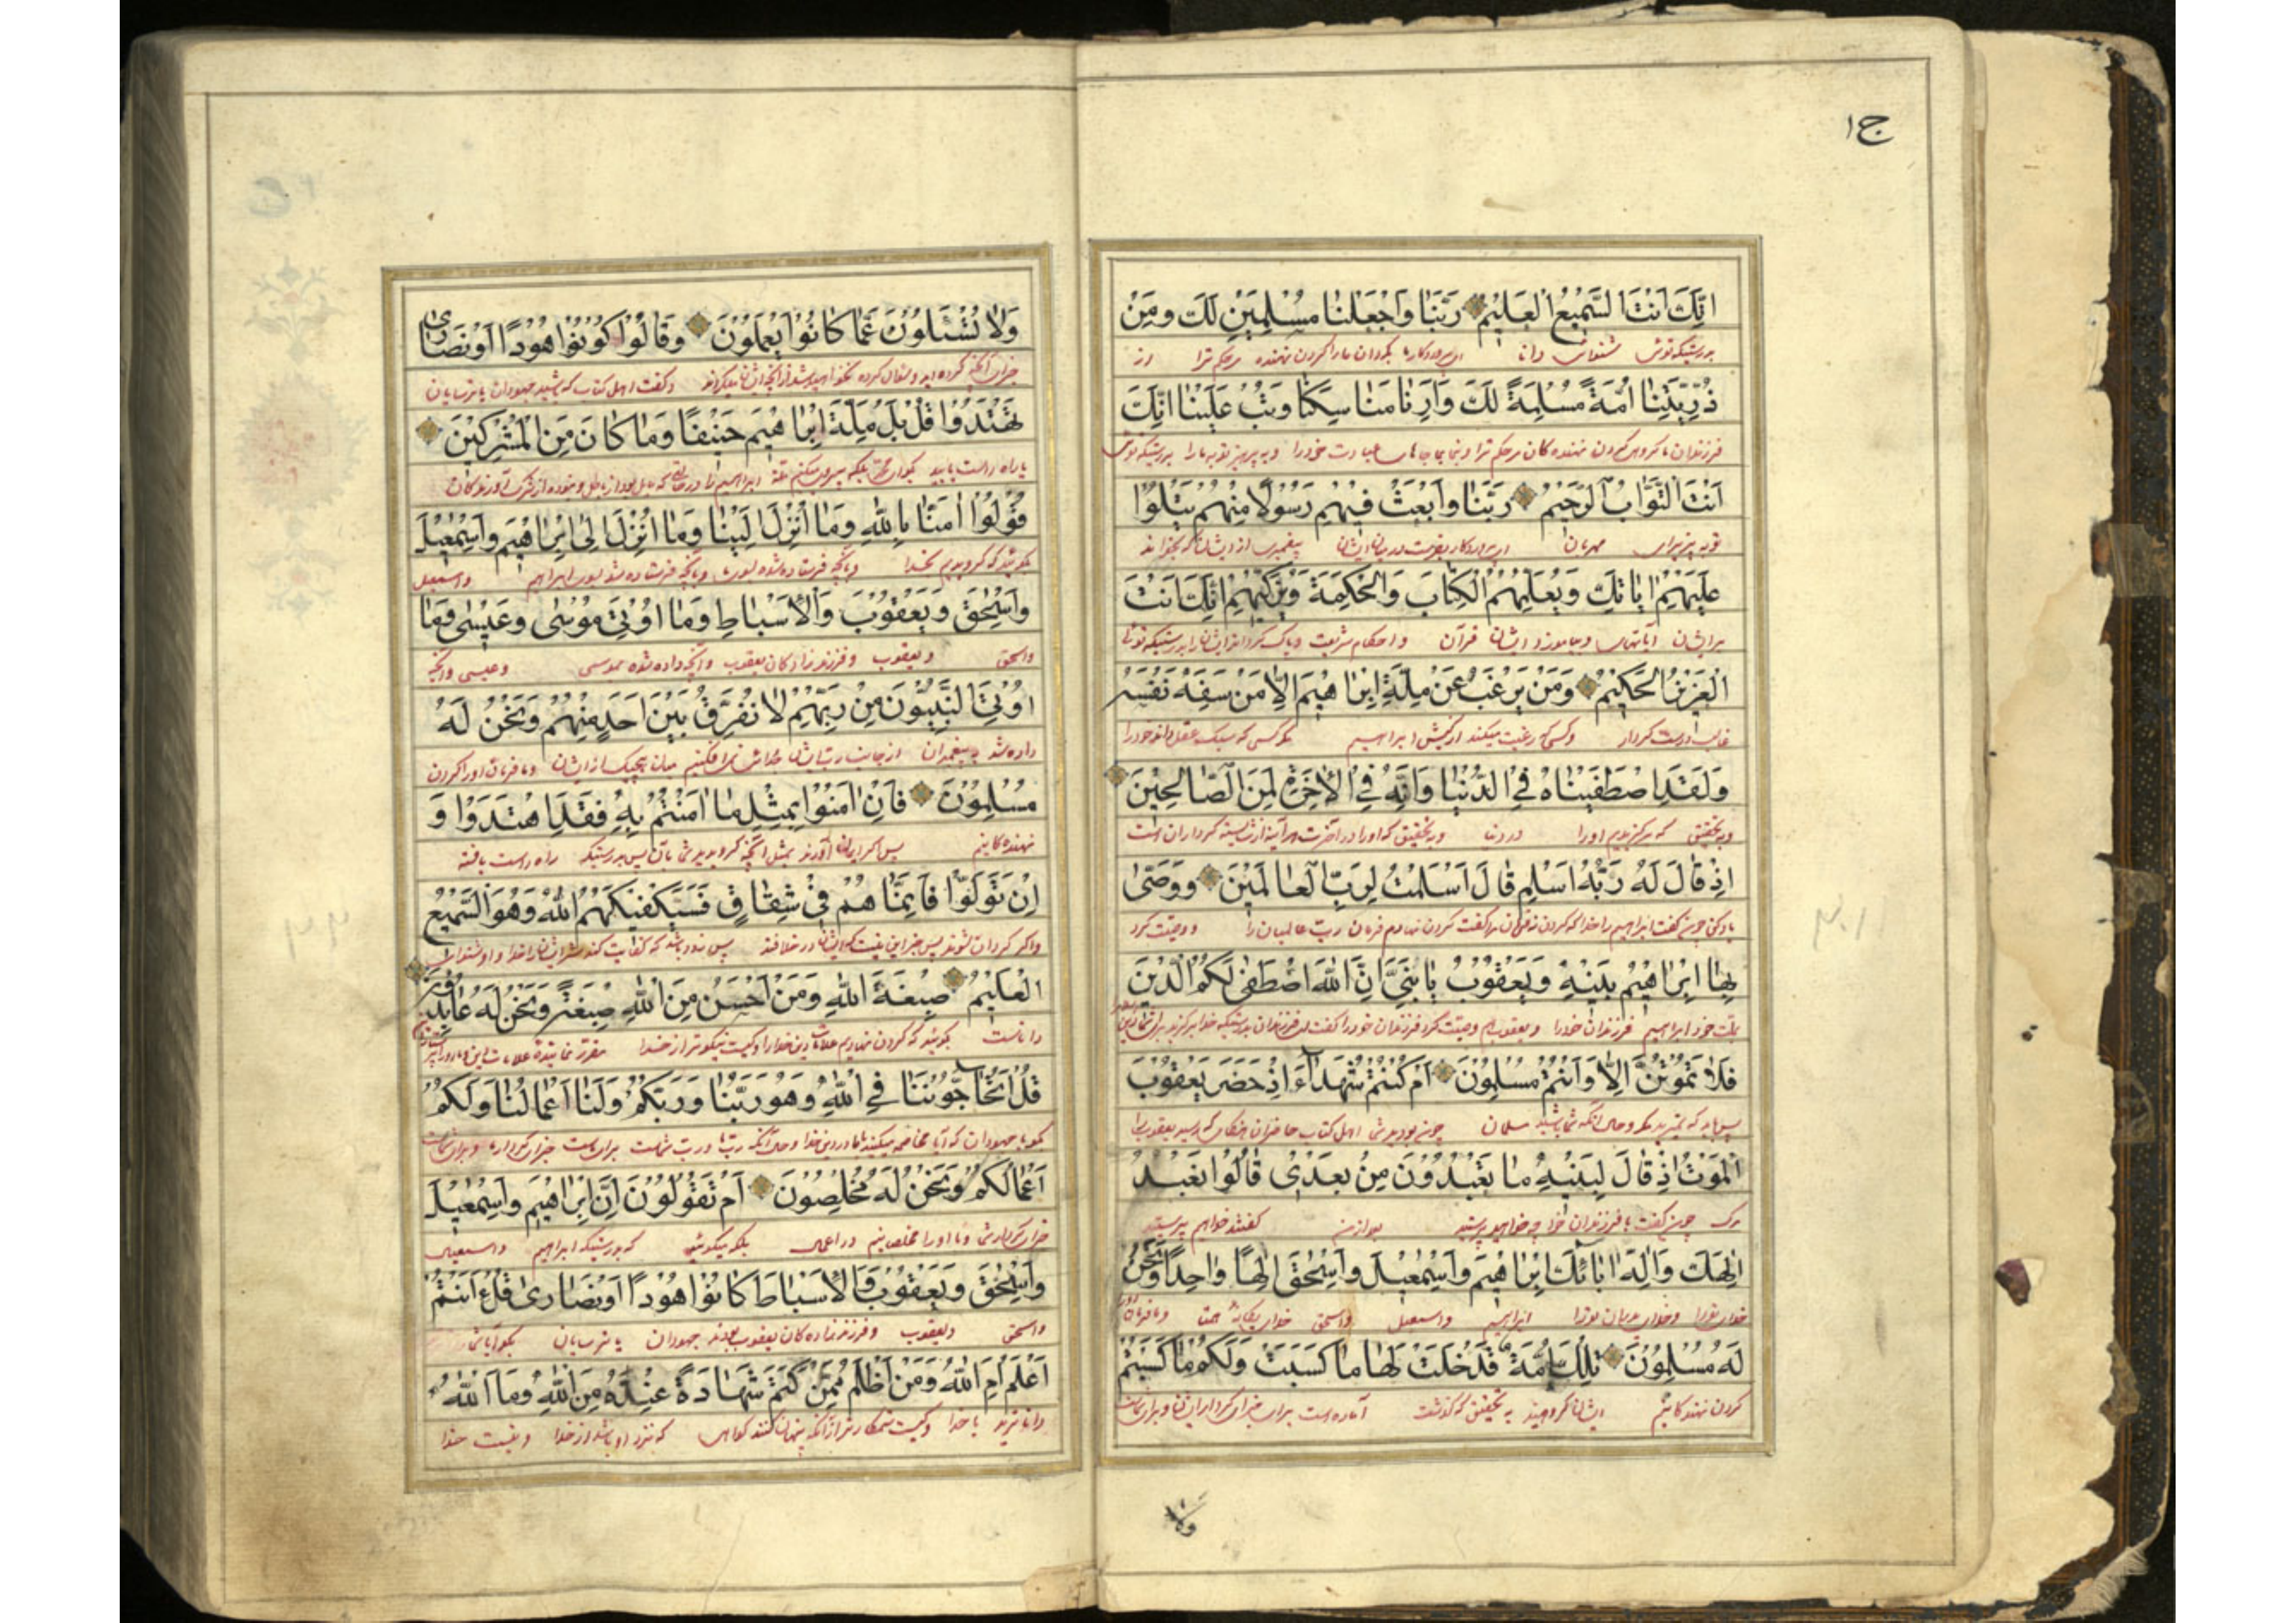 ج١
اِنَّكَ اَنْتَ السَّمِيعُ الْعَلِيمُ رَبَّنَا وَاجْعَلْنَا مُسْلِمَيْنِ لَكَ وَمِنْ
بدرستیکه توئی شنوای دانا ای پروردگار ما بگردان ما را گردن نهنده مر حکم ترا و از
ذُرِّيَّتِنَا اُمَّةً مُسْلِمَةً لَكَ وَاَرِنَا مَنَاسِكَنَا وَتُبْ عَلَيْنَا اِنَّكَ
فرزندان ما گروهی گردن نهنده کان مر حکم ترا و بنما بما جاهای عبادت خود را و بپذیر توبه ما را بدرستیکه توئی
اَنْتَ التَّوَّابُ الرَّحِيمُ رَبَّنَا وَابْعَثْ فِيهِمْ رَسُولًا مِنْهُمْ يَتْلُوا
توبه پذیرای مهربان ای پروردگار بفرست در میان ایشان پیغمبری از ایشان که بخواند
عَلَيْهِمْ اٰيَاتِكَ وَيُعَلِّمُهُمُ الْكِتَابَ وَالْحِكْمَةَ وَيُزَكِّيهِمْ اِنَّكَ اَنْتَ
بر ایشان آیتهای و بیاموزد ایشان قرآن و احکام شریعت و پاک گرداند ایشان را بدرستیکه توئی
الْعَزِيزُ الْحَكِيمُ وَمَنْ يَرْغَبُ عَنْ مِلَّةِ اِبْرَاهِيمَ اِلَّا مَنْ سَفِهَ نَفْسَهُ
غالب درست کردار و کسی که رغبت میکند از کیش ابراهیم مگر کسی که سبک عقل خود را
وَلَقَدِ اصْطَفَيْنَاهُ فِي الدُّنْيَا وَاِنَّهُ فِي الْاٰخِرَةِ لَمِنَ الصَّالِحِينَ
و بتحقیق که برگزیدیم او را در دنیا و بتحقیق که او را در آخرت هر آینه از شایسته کرداران است
اِذْ قَالَ لَهُ رَبُّهُ اَسْلِمْ قَالَ اَسْلَمْتُ لِرَبِّ الْعَالَمِينَ وَوَصّٰى
یاد کن چون گفت ابراهیم را خدا که گردن نه گفت گردن نهادم فرمان رب عالمیان را و وصیت کرد
بِهَا اِبْرَاهِيمُ بَنِيهِ وَيَعْقُوبُ يَابَنِيَّ اِنَّ اللهَ اصْطَفٰى لَكُمُ الدِّينَ
بملت خود ابراهیم فرزندان خود را و یعقوب هم وصیت کرد فرزندان خود را گفت ای فرزندان بدرستیکه خدا برگزید برای شما دین
فَلَا تَمُوتُنَّ اِلَّا وَاَنْتُمْ مُسْلِمُونَ اَمْ كُنْتُمْ شُهَدَاءَ اِذْ حَضَرَ يَعْقُوبَ
پس باید که نمیرید مگر و حال آنکه شما باشید مسلمان اهل کتاب حاضران
الْمَوْتُ اِذْ قَالَ لِبَنِيهِ مَا تَعْبُدُونَ مِنْ بَعْدِي قَالُوا نَعْبُدُ
مرگ چون گفت با فرزندان خود چه خواهید پرستید بعد از من گفتند خواهیم پرستید
اِلٰهَكَ وَاِلٰهَ اٰبَائِكَ اِبْرَاهِيمَ وَاِسْمٰعِيلَ وَاِسْحٰقَ اِلٰهًا وَاحِدًا وَنَحْنُ
خدای ترا و خدای پدران ترا ابراهیم و اسمعیل و اسحق خدای یگانه
لَهُ مُسْلِمُونَ تِلْكَ اُمَّةٌ قَدْ خَلَتْ لَهَا مَا كَسَبَتْ وَلَكُمْ مَا كَسَبْتُمْ
گردن نهنده کانیم ایشان گروهیند بتحقیق که گذشت آماده است برای
ولا
وَلَا تُسْئَلُونَ عَمَّا كَانُوا يَعْمَلُونَ وَقَالُوا كُونُوا هُودًا اَوْ نَصَارٰى
و گفت اهل کتاب که باشید جهودان یا ترسایان
تَهْتَدُوا قُلْ بَلْ مِلَّةَ اِبْرَاهِيمَ حَنِيفًا وَمَا كَانَ مِنَ الْمُشْرِكِينَ
یا راه راست یابید بگو ای محمد بلکه پیروی میکنم ملة ابراهیم را
قُولُوا اٰمَنَّا بِاللهِ وَمَا اُنْزِلَ اِلَيْنَا وَمَا اُنْزِلَ اِلٰى اِبْرَاهِيمَ وَاِسْمٰعِيلَ
بگوئید که گرویدیم بخدا و بآنچه فرستاده شده بسوی ما و بآنچه فرستاده شد بسوی ابراهیم و اسمعیل
وَاِسْحٰقَ وَيَعْقُوبَ وَالْاَسْبَاطِ وَمَا اُوتِيَ مُوسٰى وَعِيسٰى وَمَا
و اسحق و یعقوب و فرزند زاد کان یعقوب و آنچه داده شده بموسی و عیسی و آنچه
اُوتِيَ النَّبِيُّونَ مِنْ رَبِّهِمْ لَا نُفَرِّقُ بَيْنَ اَحَدٍ مِنْهُمْ وَنَحْنُ لَهُ
داده شد پیغمبران از جانب رب ایشان جدائی نمی افکنیم میان هیچیک از ایشان و ما فرمان او را گردن
مُسْلِمُونَ فَاِنْ اٰمَنُوا بِمِثْلِ مَا اٰمَنْتُمْ بِهِ فَقَدِ اهْتَدَوْا وَ
نهنده کانیم پس اگر ایمان آورند بمثل آنچه گرویدید شما بآن پس بدرستیکه راه راست یافته
اِنْ تَوَلَّوْا فَاِنَّمَا هُمْ فِي شِقَاقٍ فَسَيَكْفِيكَهُمُ اللهُ وَهُوَ السَّمِيعُ
الْعَلِيمُ صِبْغَةَ اللهِ وَمَنْ اَحْسَنُ مِنَ اللهِ صِبْغَةً وَنَحْنُ لَهُ عَابِدُونَ
قُلْ اَتُحَاجُّونَنَا فِي اللهِ وَهُوَ رَبُّنَا وَرَبُّكُمْ وَلَنَا اَعْمَالُنَا وَلَكُمْ
اَعْمَالُكُمْ وَنَحْنُ لَهُ مُخْلِصُونَ اَمْ تَقُولُونَ اِنَّ اِبْرَاهِيمَ وَاِسْمٰعِيلَ
و ما او را مخلصانیم در اعمال بلکه میگوئید که بدرستیکه ابراهیم و اسمعیل
وَاِسْحٰقَ وَيَعْقُوبَ وَالْاَسْبَاطَ كَانُوا هُودًا اَوْ نَصَارٰى قُلْ ءَاَنْتُمْ
و اسحق و یعقوب و فرزند زاده کان یعقوب بودند جهودان یا ترسایان بگو آیا شما
اَعْلَمُ اَمِ اللهُ وَمَنْ اَظْلَمُ مِمَّنْ كَتَمَ شَهَادَةً عِنْدَهُ مِنَ اللهِ وَمَا اللهُ
داناترید یا خدا و کیست ستمکارتر از آنکه پنهان کند گواهی که نزد او باشد از خدا و نیست خدا